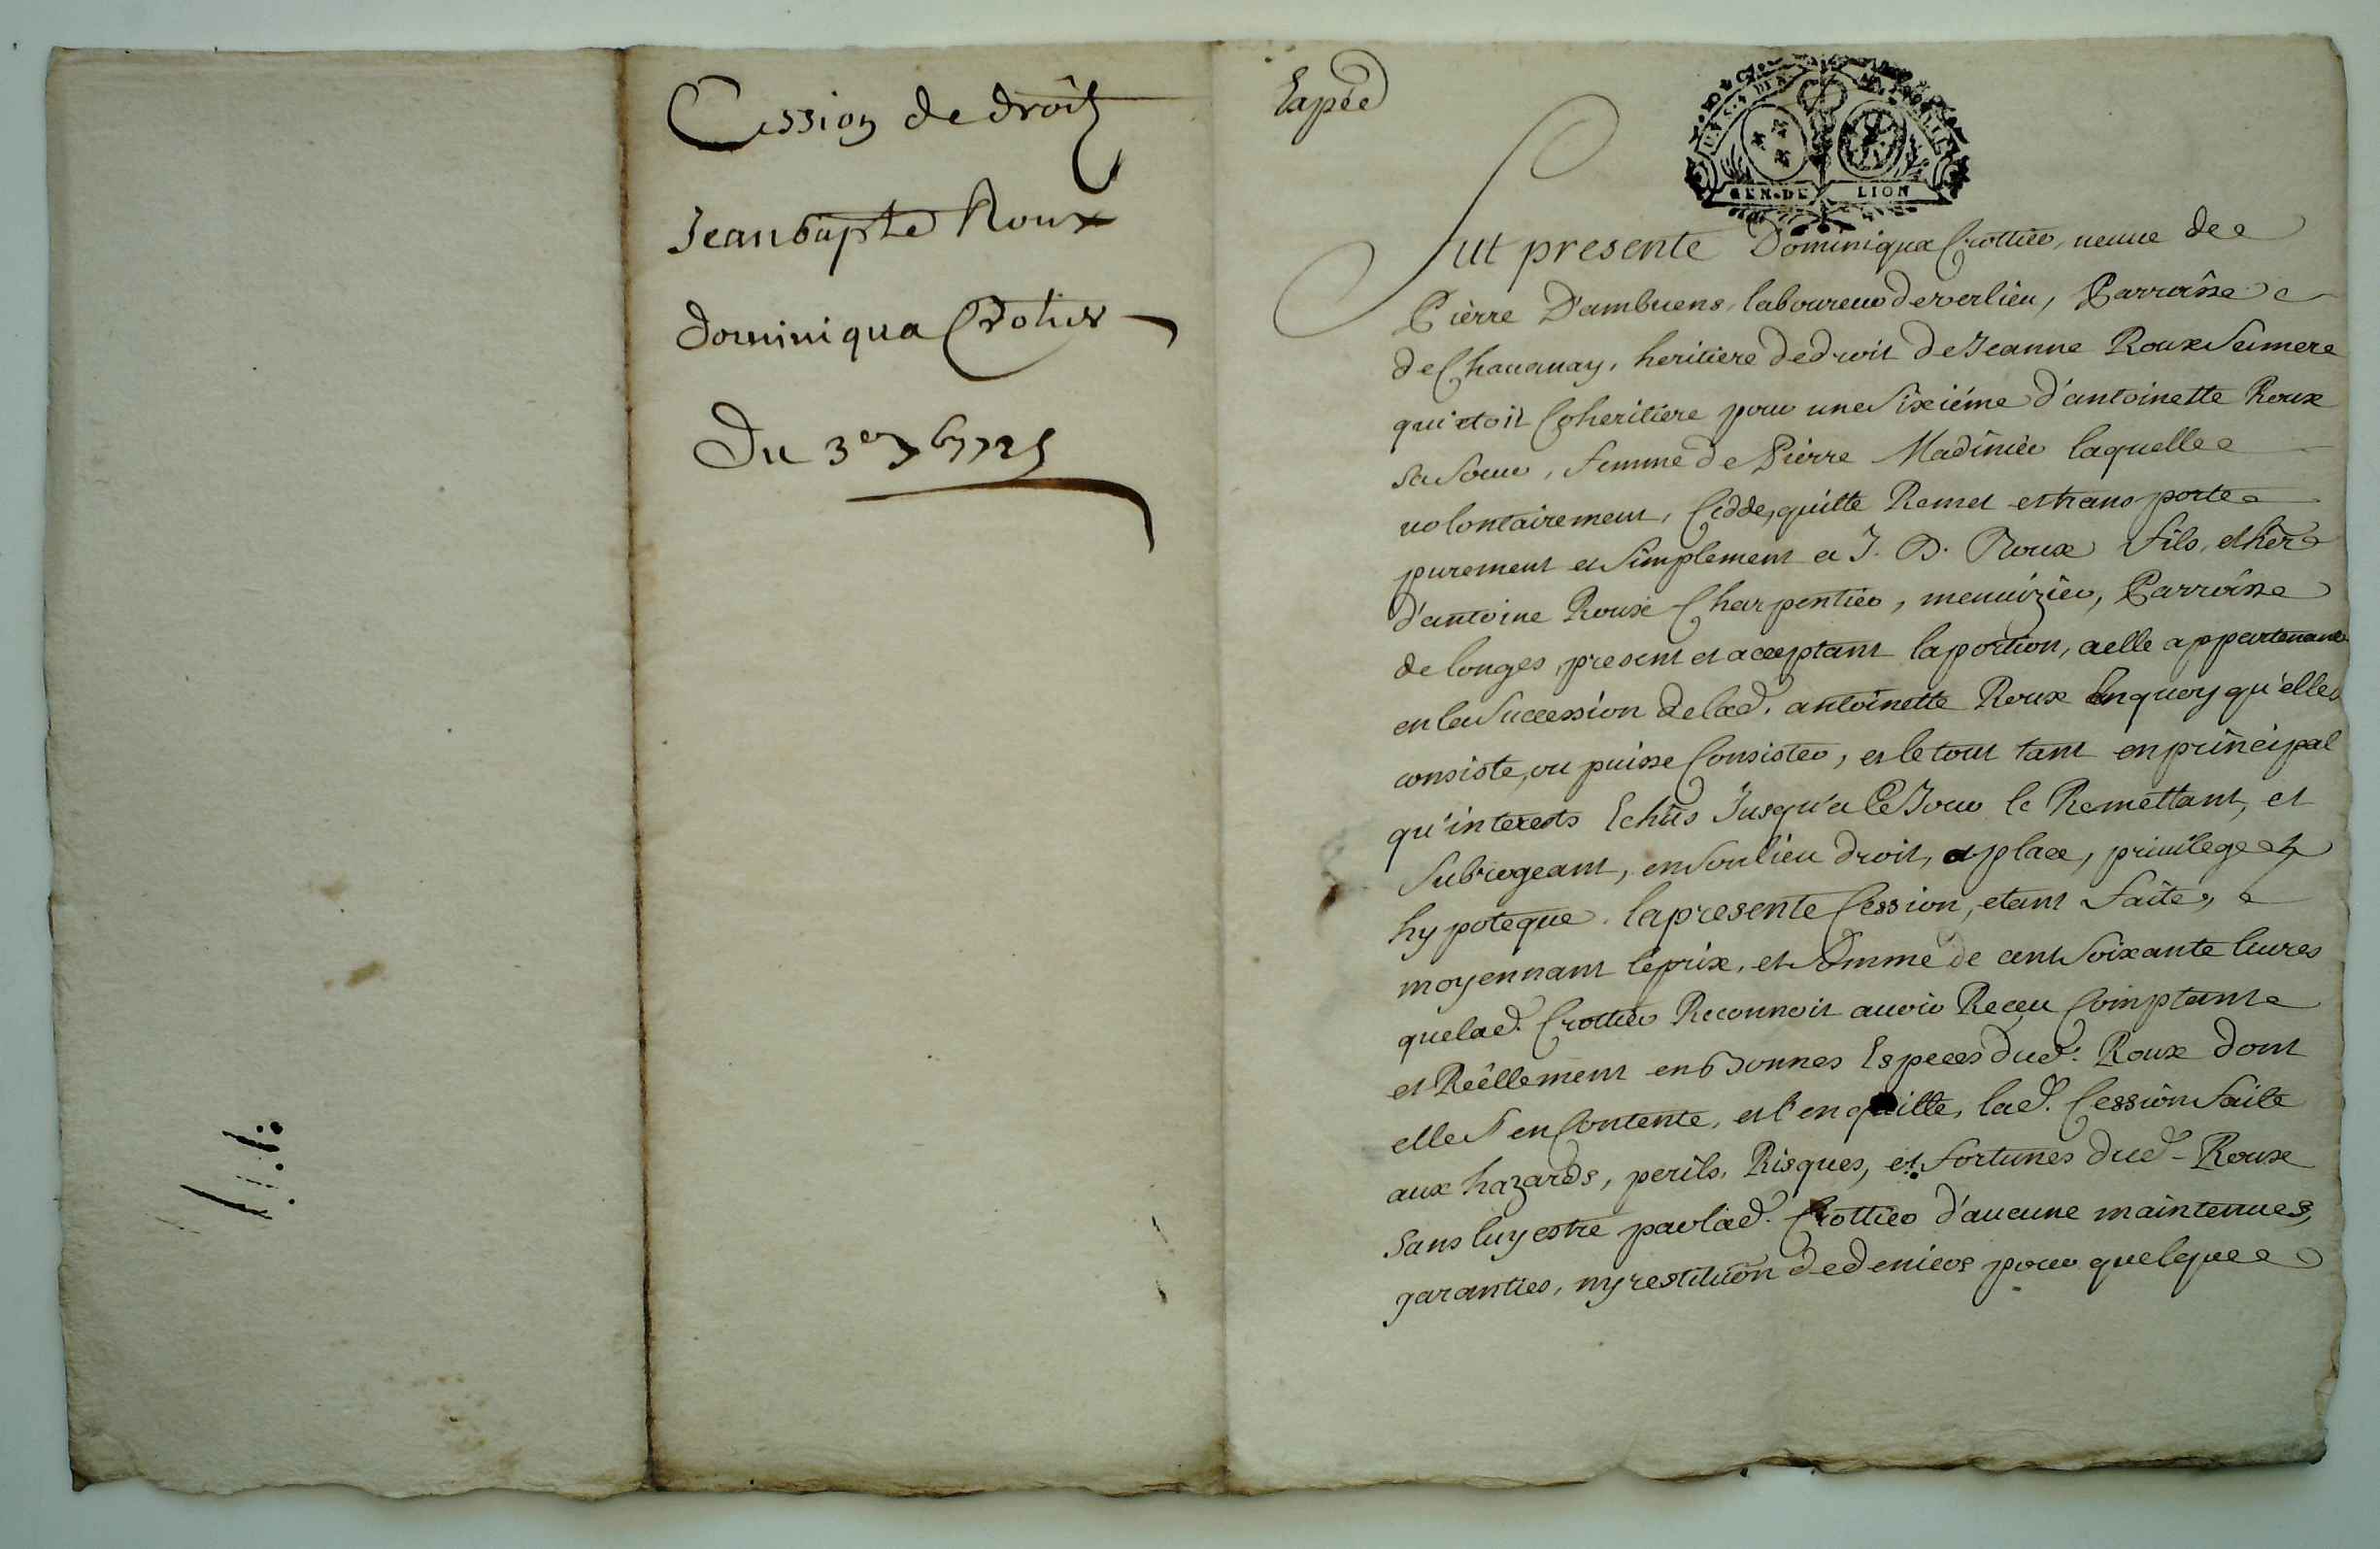 Cession de droits
Jean bapte Roux
dominiqua Crotier
Du 3e
Expée
GEN. DE LION
Fut presente Dominiqua Crottier, veuve de
Pièrre D'ambuens, laboureur de verlieu, Parroisse
de Chauanay, heritiere de droit de Jeanne Roux Sa mere
qui etoit Coheritiere pour une Sixiéme d'antoinette Roux
sa Soeur, femme de Pierre Madinier laquelle
uolontairement, Cedde, quitte Remet et transporte
purement et Simplement a J. B. Roux fils, et her
d'antoine Roux Charpentier, menuizier, Parroisse
de longes, present et acceptant la portion, a elle appartenante
en la Succession de lad. antoinette Roux En quoy qu'elle
consiste, ou puisse Consister, et le tout tant en principal
qu'interests Echûs Jusqu'a Ce Jour le Remettant, et
Subrogeant, en Son lieu droit, et place, priuilege et
hypoteque. la presente Cession, etant faite,
moyennant le prix, et Somme de cent Soixante liures
que lad. Crottier Reconnoit auoir Receu Comptant
et Réellement en Bonnes Especes dud. Roux dont
elle S'en Contente, et l'en quitte, lad. Cession faite
aux hazards, perils, Risques, et fortunes dud. Roux
sans luy estre par lad. Crottier d'aucune maintenues,
garanties, ny restitution de deniers pour quelque